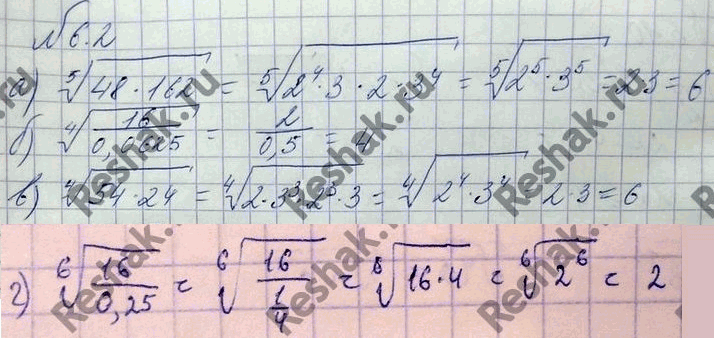 №6.2
а) ⁵√(48·162) = ⁵√(2⁴·3·2·3⁴) = ⁵√(2⁵·3⁵) = 2·3 = 6
б) ⁴√(16/0,0625) = 2/0,5 = 4
в) ⁴√(54·24) = ⁴√(2·3³·2³·3) = ⁴√(2⁴·3⁴) = 2·3 = 6
г) ⁶√(16/0,25) = ⁶√(16/(1/4)) = ⁶√(16·4) = ⁶√(2⁶) = 2
Reshak.ru
Reshak.ru
Reshak.ru
Reshak.ru
Reshak.ru
Reshak.ru